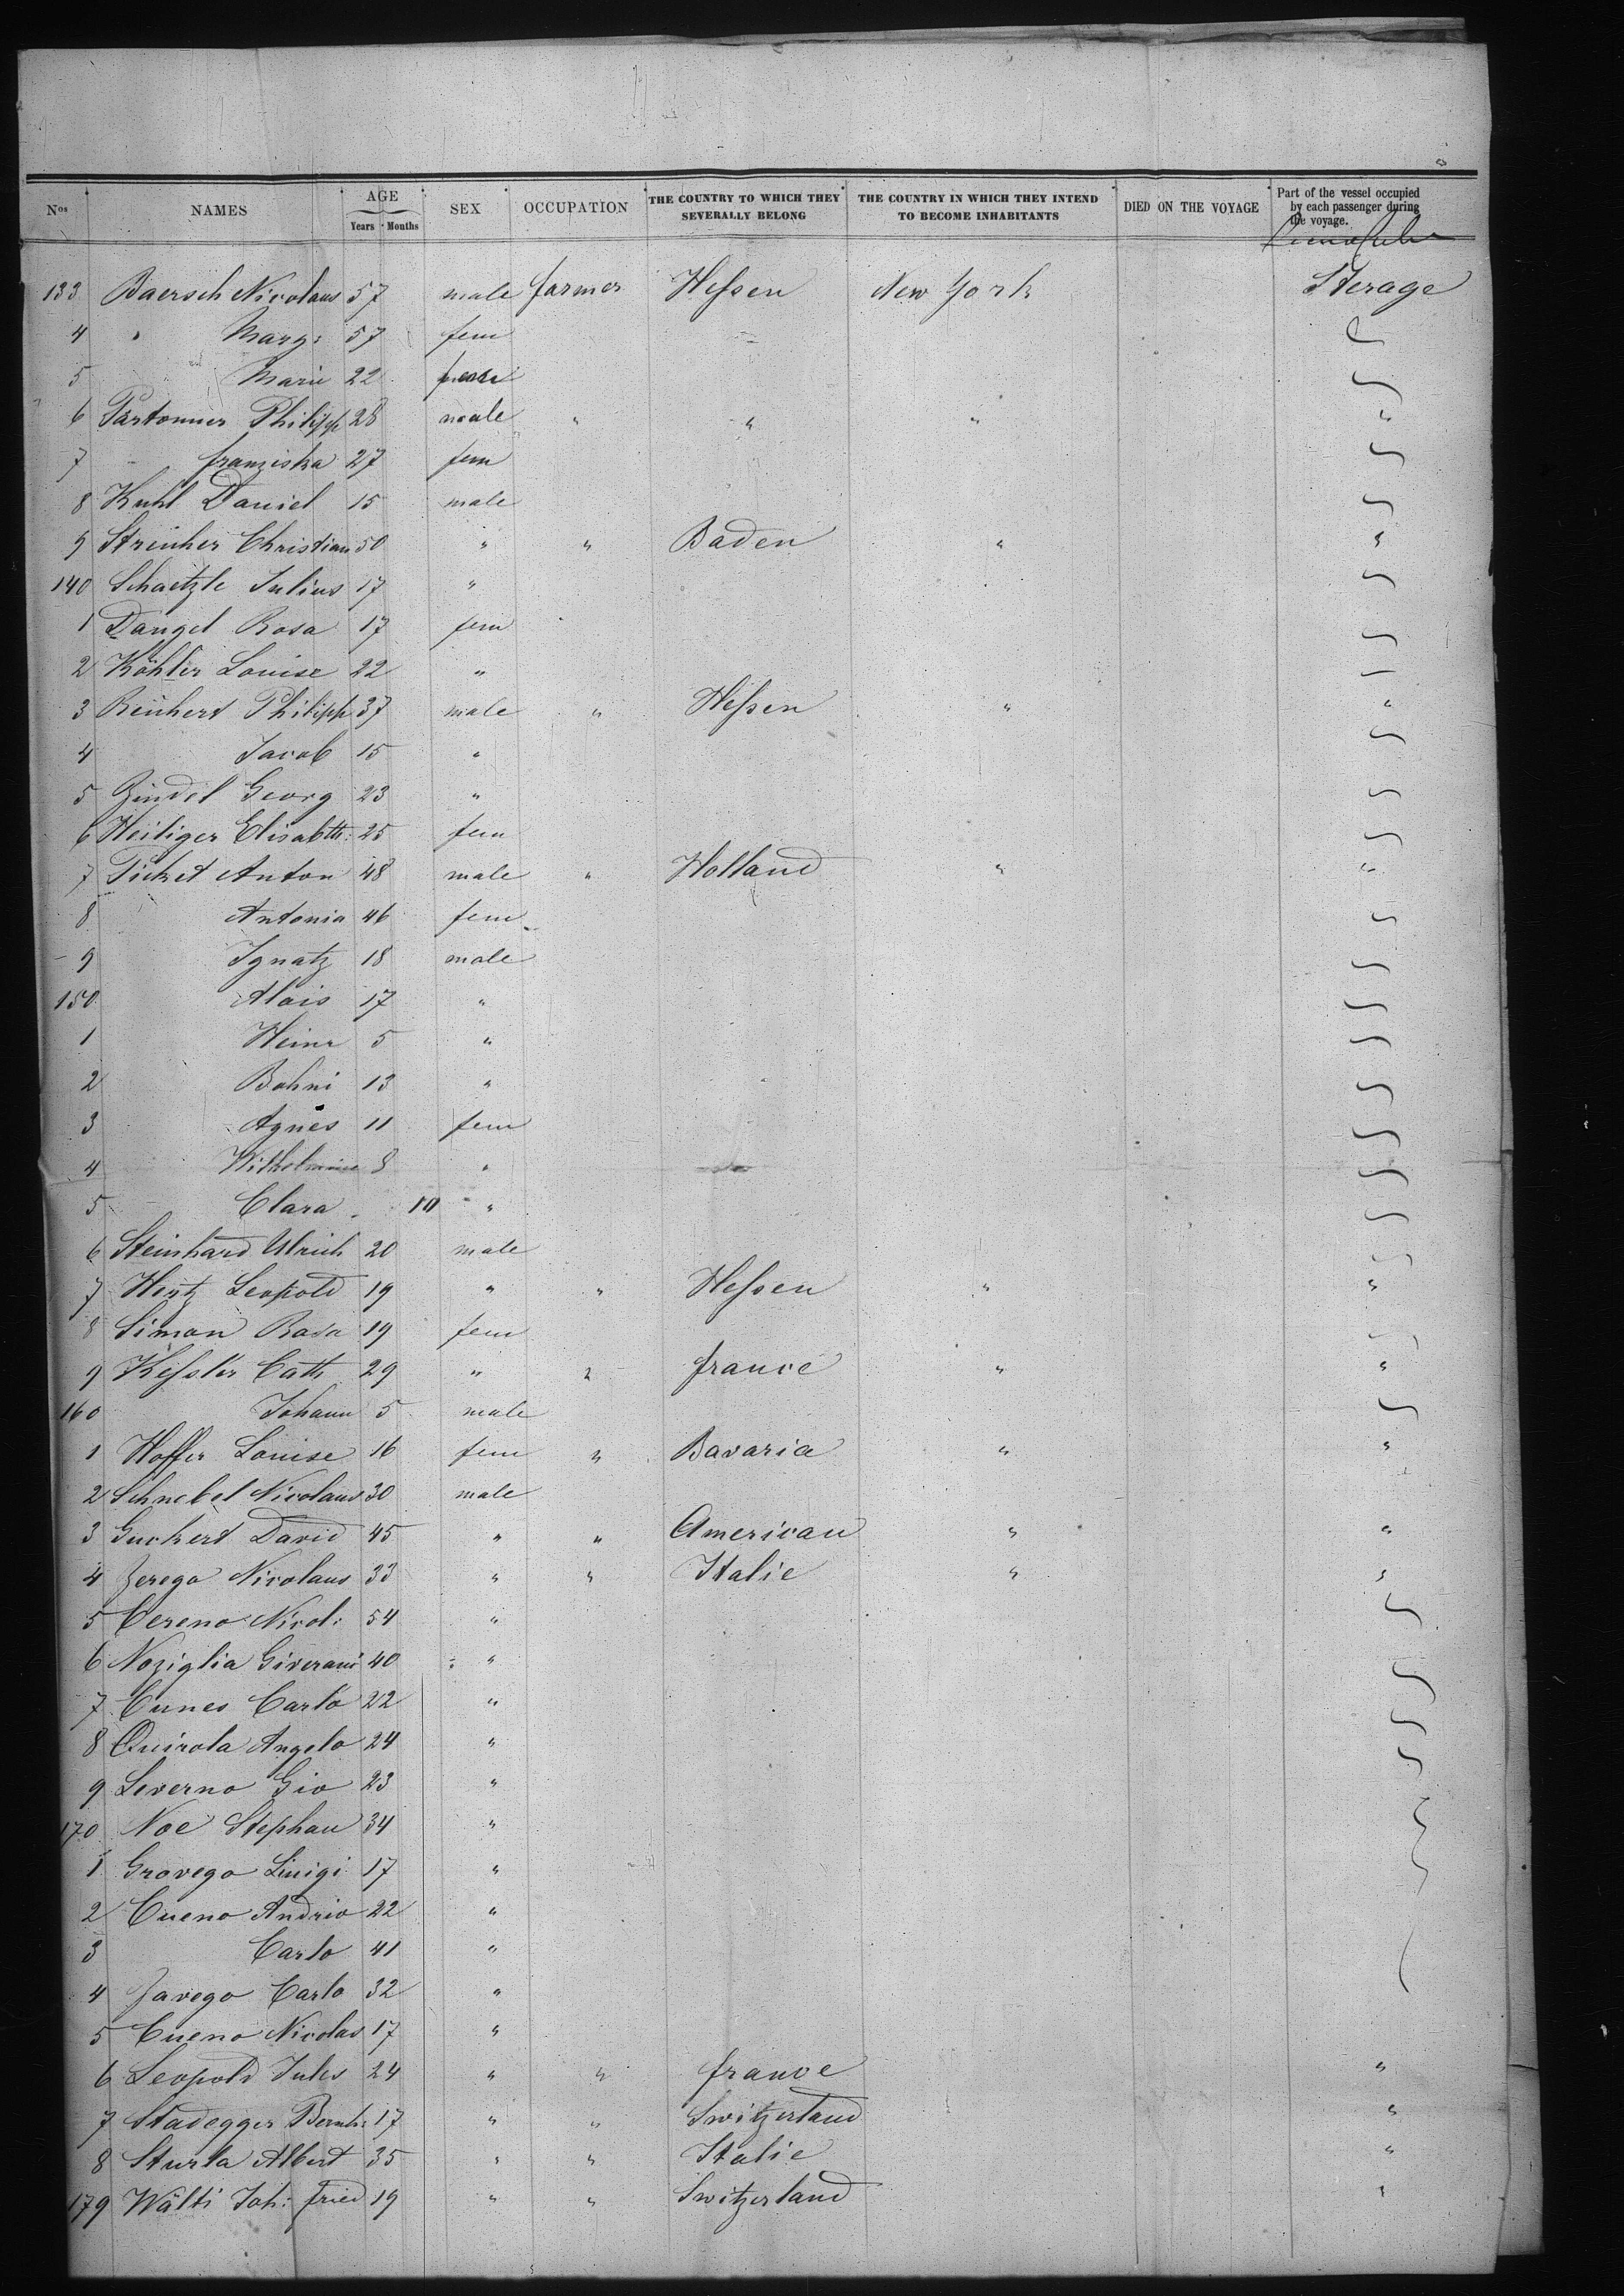 Nos NAMES AGE Years Months SEX OCCUPATION THE COUNTRY TO WHICH THEY SEVERALLY BELONG THE COUNTRY IN WHICH THEY INTEND TO BECOME INHABITANTS DIED ON THE VOYAGE Part of the vessel occupied by each passenger during the voyage.
133 Baersch Nicolaus 57 male farmer Hessen New York Sterage
4 " Marg: 57 fem
5 Marie 22
6 Philipp 28 male " " " "
7 franziska 27 fem
8 Kuhl Daniel 15 male
9 Christian 50 " " Baden " "
140 Schaetzle Julius 17 "
1 Dangel Rosa 17 fem
2 Köhler Louise 22 "
3 Reichert Philipp 37 male " Hessen " "
4 Jacob 15 "
5 Zindel Georg 23 "
6 Heiliger Elisabth: 25 fem
7 Anton 48 male " Holland " "
8 Antonia 46 fem
9 Ignatz 18 male
150 Alois 17 "
1 Heinr 5 "
2 Bohni 13 "
3 Agnes 11 fem
4 Wilhelmine 8 "
5 Clara 10 "
6 Steinhard Ulrich 20 male
7 Hertz Leopold 19 " " Hessen " "
8 Simon Rosa 19 fem
9 Kessler Cath 29 " " france " "
160 Johann 5 male
1 Hoffer Louise 16 fem " Bavaria " "
2 Schnebel Nicolaus 30 male
3 Guckert David 45 " " American " "
4 Zerego Nicolaus 33 " " Italie " "
5 Cereno Nicol: 54 "
6 Noziglia Giverani 40 "
7 Cunes Carlo 22 "
8 Quirola Angelo 24 "
9 Leverno Gio 23 "
170 Noe Stephan 34 "
1 Grovego Luigi 17 "
2 Cueno Andrio 22 "
3 Carlo 41 "
4 Zavego Carlo 32 "
5 Cueno Nicolas 17 "
6 Leopold Jules 24 " " france "
7 Stadegger Bernh: 17 " " Switzerland "
8 Sturla Albert 35 " " Italie "
179 Wälti Joh: fried 19 " " Switzerland "